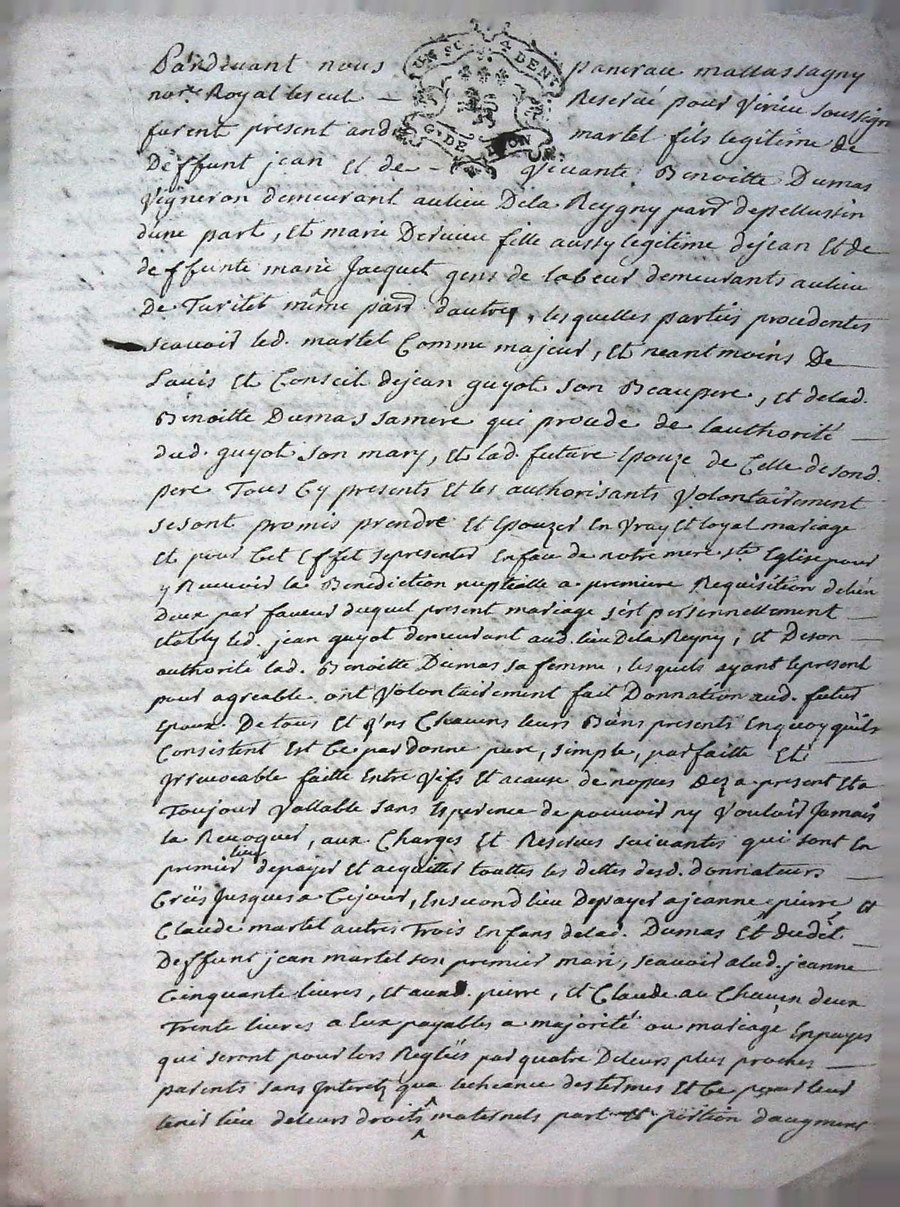 Pardevant nous pancrau mattassagny
UN SOL 4 DEN.
G. DE LYON
nore Royal Reservé pour Virieu soussigné
furent present and martel fils legitime de
Deffunt jean et de Vivante Benoitte Dumas
Vigneron demeurant aulieu Dela Reygny parr depellussin
dune part, Et marie fille aussy legitime dejean Et de
deffunte marie Jacquet gens de labeur demeurants aulieu
De même parr dautre, lesquelles parties procedentes
scavoir led. martel Comme majeur, Et neantmoins De
Lavis Et Conseil dejean guyot son Beaupere, Et delad.
Benoitte Dumas samere qui procede de lauthorité
dud. guyot son mary, Et lad. future Epouze de Celle desond.
pere Tous Cy presents Et les authorisants Volontairement
sesont promis prendre Et Epouzer En Vray Et loyal mariage
Et pour Cet Effet sepresenter Enface de notre mere ste Eglise pour
y Recevoir la Benediction nuptialle a premiere Requisition delun
Deux par faveur duquel present mariage s'est personnellement
Etably led. jean guyot demeurant aud. lieu Dela Reyny, Et Deson
authorité lad. Benoitte Dumas sa femme, lesquels ayant lepresent
pour agreable ont Volontairement fait Donnation aud. futur
Epoux. De tous Et Chacuns leurs Biens presents Enquoy quils
Consistent Est Ce par Donne pure, simple, parfaitte Et
Irrevocable faitte Entre Vifs Et acause de nopces Deza present Et a
Toujour Vallable sans Esperence de pouvoir ny Vouloir Jamais
la Revoquer, aux Charges Et Reserves suivantes qui sont En
premier lieu depayer Et acquitter touttes les dettes desd. donnateurs
Créés Jusques a Cejour, En second lieu Depayer a jeanne pierre, Et
Claude martel autres Trois Enfans delad. Dumas Et dudit
Deffunt jean martel son premier mari, scavoir alad. jeanne
Cinquante livres, Et auxd. pierre, Et Claude au Chacun deux
Trente livres a Eux payables a majorité ou mariage Enpayes
qui seront pour lors Reglées par quatre Deleurs plus proches
parents sans Interetz qua lecheance destermes Et Ce pour leur
tenir lieu deleurs droits maternels part Et portion daugment